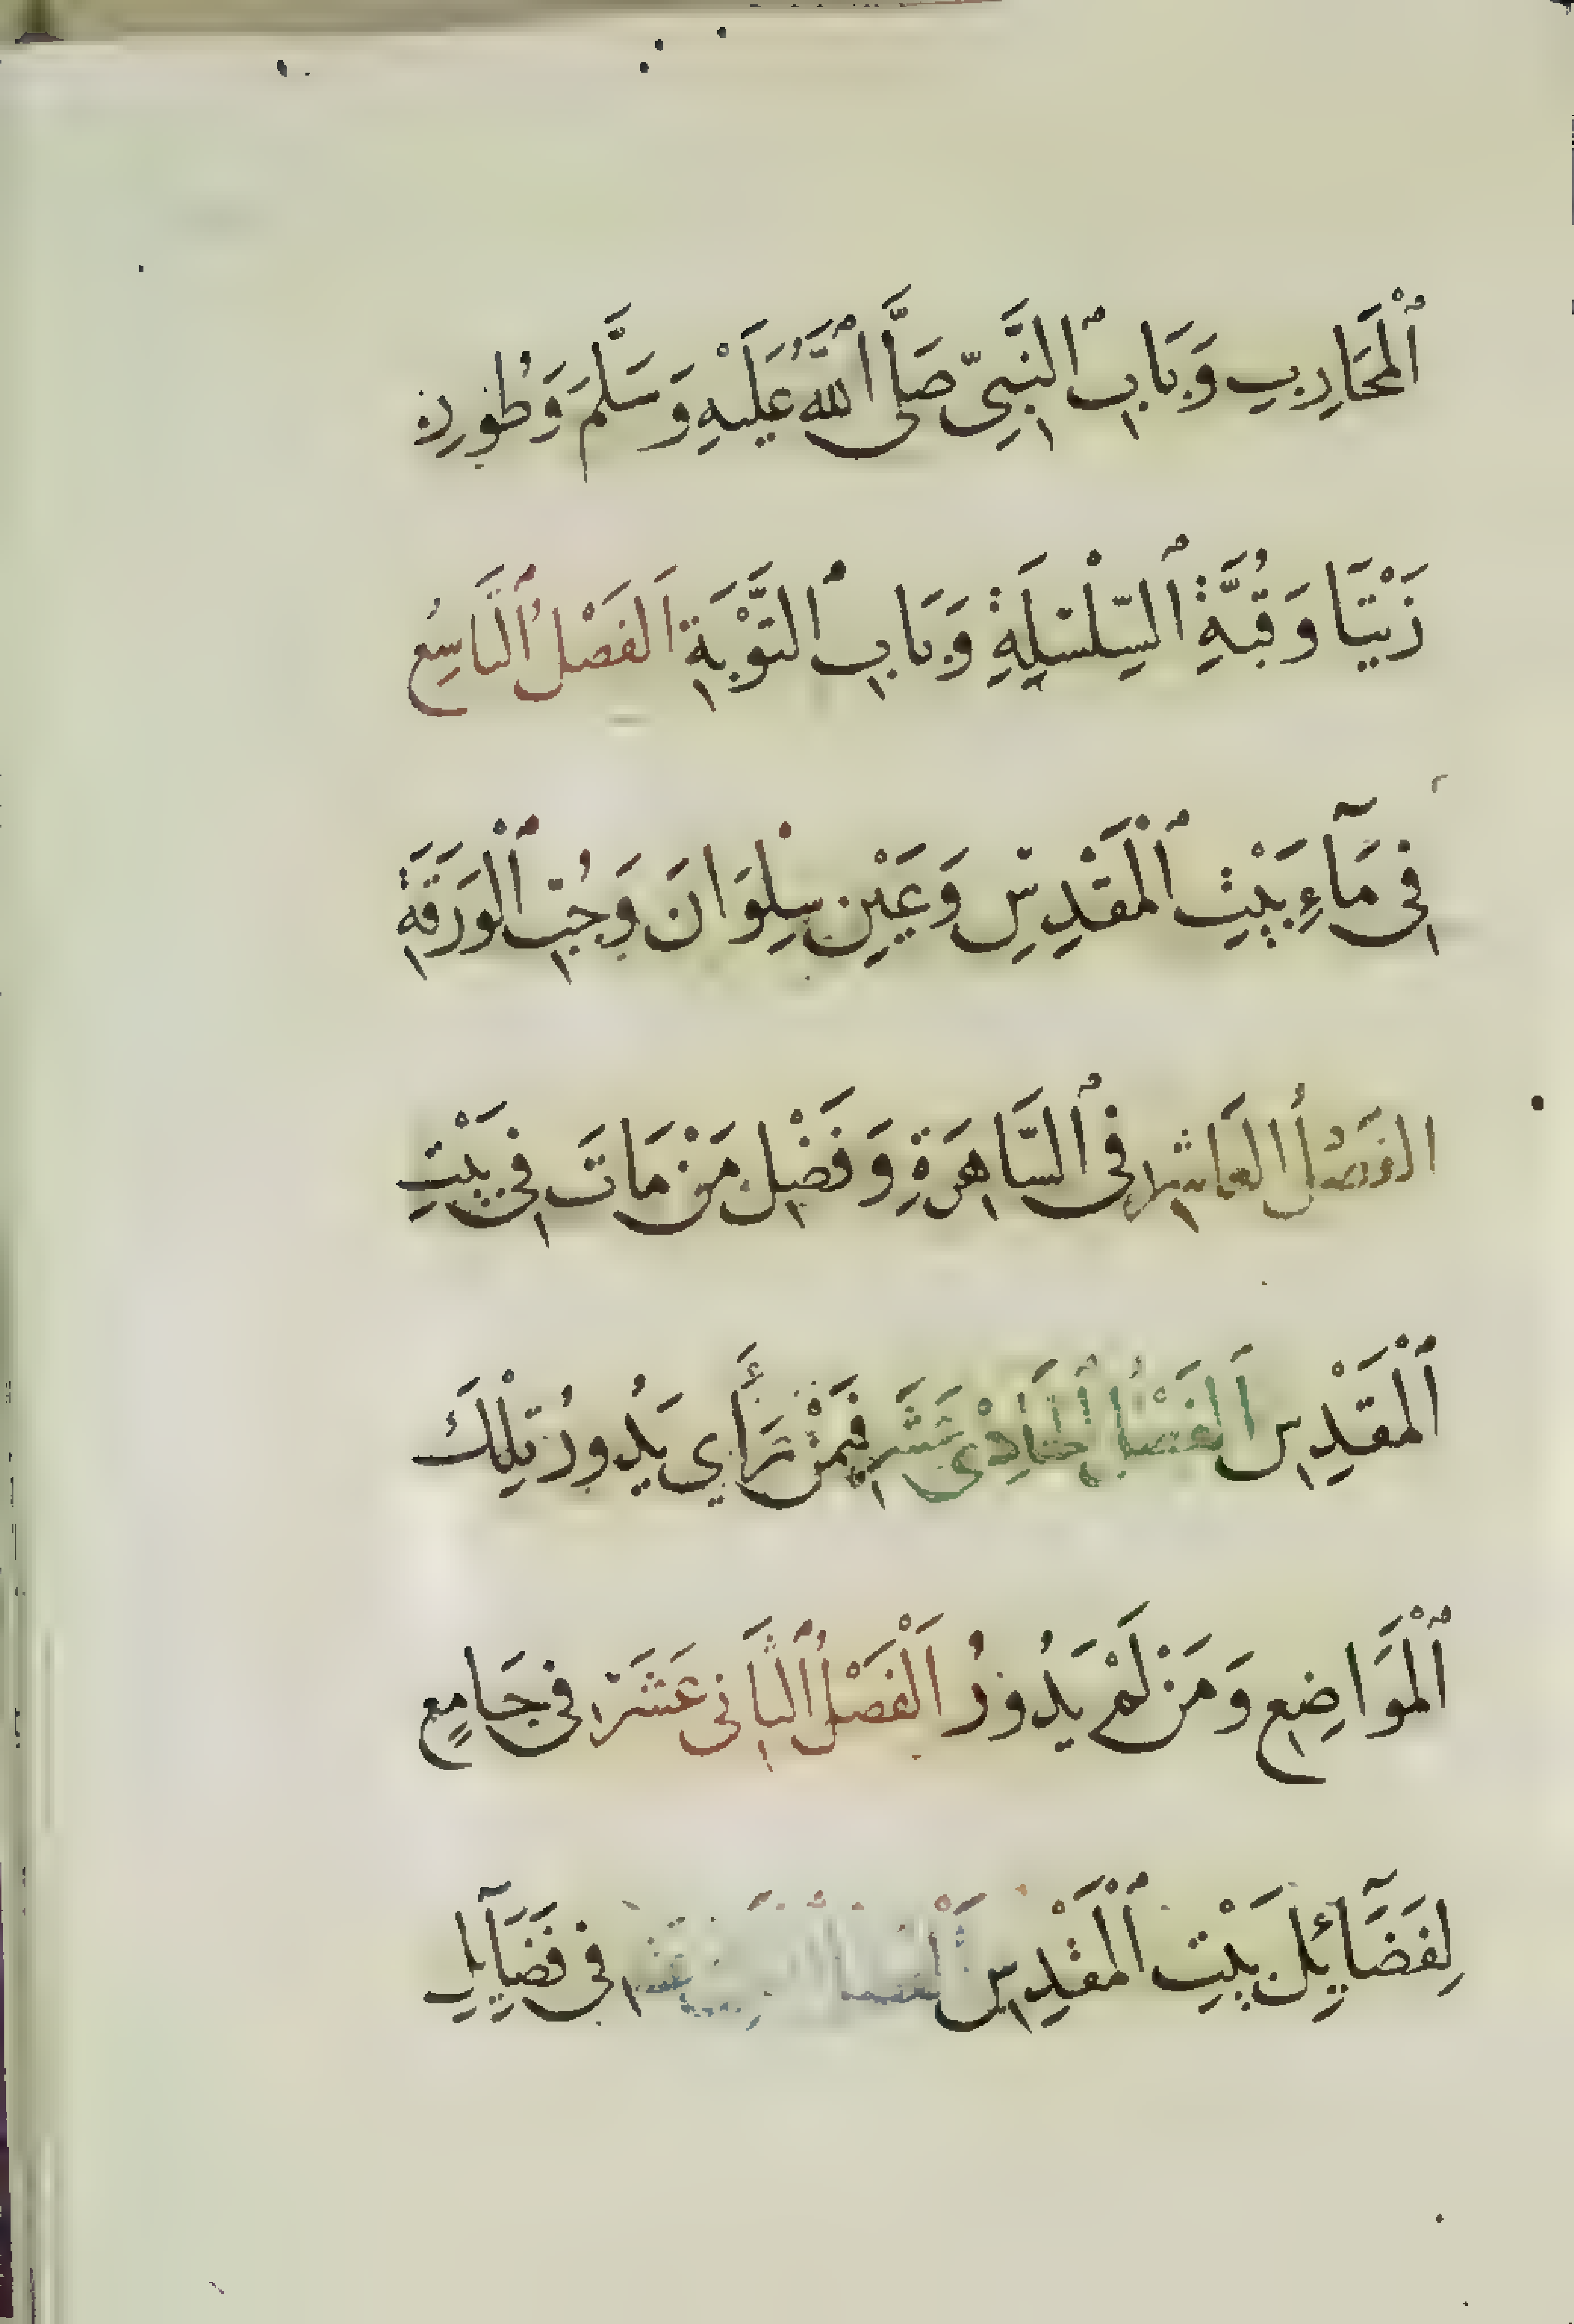 ٱلْمَحَارِيبِ وَبَابِ ٱلنَّبِيِّ صَلَّى ٱللَّهُ عَلَيْهِ وَسَلَّمَ وَطُورِ
زَيْتَا وَقُبَّةِ ٱلسِّلْسِلَةِ وَبَابِ ٱلتَّوْبَةِ اَلفَصْلُ ٱلتَّاسِعُ
فِى مَآءِ بَيْتِ ٱلْمَقْدِسِ وَعَيْنِ سِلْوَانَ وَجُبِّ ٱلْوَرَقَةِ
الفَصْلُ العَاشِر فِى ٱلسَّاهِرَةِ وَفَضْلِ مَنْ مَاتَ فِى بَيْتِ
ٱلْمَقْدِسِ اَلفَصْلُ ٱلحَادِىْ عَشَرَ فِيمَنْ رَأَى يَدُورُ تِلْكَ
ٱلْمَوَاضِعِ وَمَنْ لَمْ يَدُورُ اَلْفَصْلُ ٱلثَّانِى عَشَرَ فِى جَامِعٍ
لِفَضَآئِلِ بَيْتِ ٱلْمَقْدِسِ فِى فَضَآيِلِ